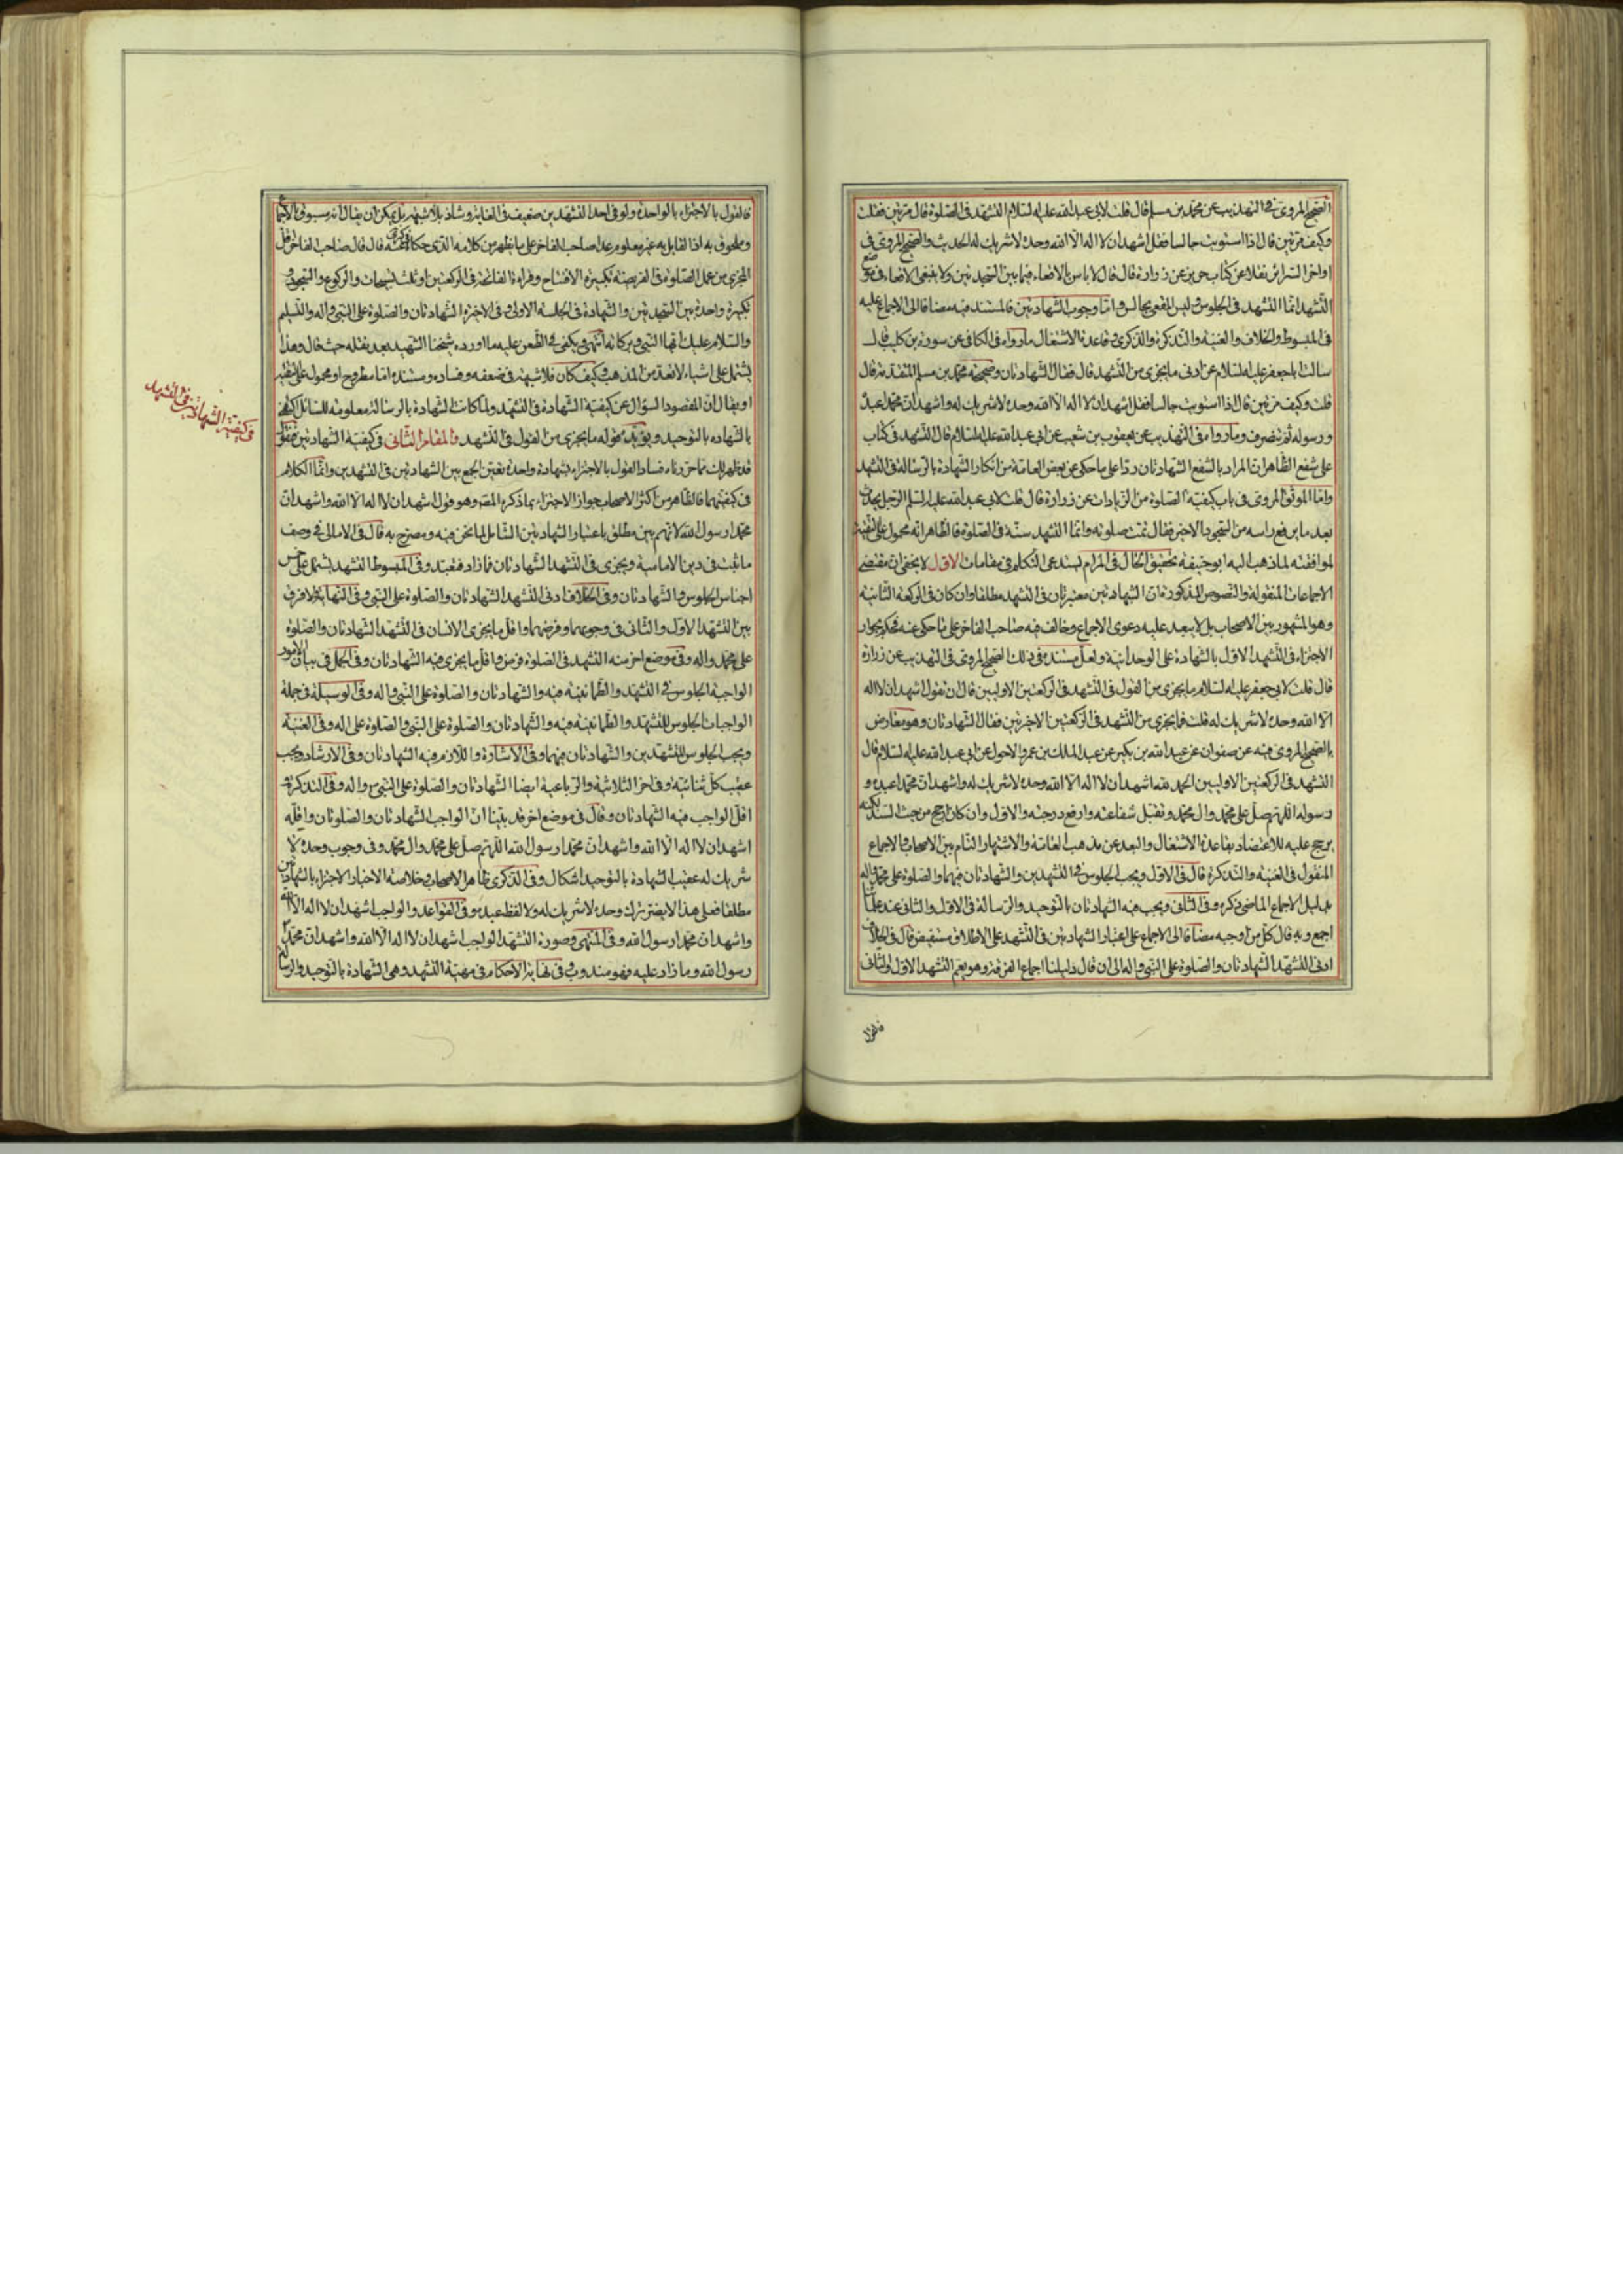 الصحيح المروي في التهذيب عن محمد بن مسلم قال قلت لابي عبد الله عليه السلام التشهد في الصلوة قال مرتين فقلت
وكيف مرتين قال اذا استويت جالسا فقل اشهد ان لا اله الا الله وحده لا شريك له الحديث والصحيح المروي في
اواخر السرائر نقلا عن كتاب حريز عن زرارة قال قال لا باس بالاقعاء فيما بين السجدتين ولا ينبغي الاقعاء في موضع
التشهد انما التشهد في الجلوس وليس المقعي بجالس واما وجوب الشهادتين فالمستند فيه مضافا الى الاجماع عليه
في المبسوط والخلاف والغنية والتذكرة والذكرى وقاعدة الاشتغال ما رواه في الكافي عن سورة بن كليب قال
سالت ابا جعفر عليه السلام عن ادنى ما يجزي من التشهد قال فقال الشهادتان وصحيحة محمد بن مسلم المتقدمة قال
قلت وكيف مرتين قال اذا استويت جالسا فقل اشهد ان لا اله الا الله وحده لا شريك له واشهد ان محمدا عبده
ورسوله ثم تنصرف وما رواه في التهذيب عن يعقوب بن شعيب عن ابي عبد الله عليه السلام قال التشهد في كتاب
علي شفع الظاهر ان المراد بالشفع الشهادتان ردا على ما حكى عن بعض العامة من انكار الشهادة بالرسالة في التشهد
واما الموثق المروي في باب كيفية الصلوة من الزيادات عن زرارة قال قلت لابي عبد الله عليه السلم الرجل يحدث
بعد ما يرفع راسه من السجود الاخير فقال تمت صلوته وانما التشهد سنة في الصلوة فالظاهر انه محمول على التقية
لموافقته لما ذهب اليه ابو حنيفة تحقيق الحال في المرام يستدعي التكلم في مقامات الاول لا يخفى ان مقتضى
الاجماعات المنقولة والنصوص المذكورة ان الشهادتين معتبرتان في التشهد مطلقا وان كان في الركعة الثانية
وهو المشهور بين الاصحاب بل لا يبعد عليه دعوى الاجماع وخالف فيه صاحب الفاخر على ما حكى عنه فحكم بجواز
الاجتزاء في التشهد الاول بالشهادة على الوحدانية ولعل مستنده في ذلك الصحيح المروي في التهذيب عن زرارة
قال قلت لابي جعفر عليه السلام ما يجزي من القول في التشهد في الركعتين الاوليين قال ان تقول اشهد ان لا اله
الا الله وحده لا شريك له قلت فما يجزي من التشهد في الركعتين الاخيرتين فقال الشهادتان وهو معارض
بالصحيح المروي فيه عن صفوان عن عبد الله بن بكير عن عبد الملك بن عمرو الاحول عن ابي عبد الله عليه السلام قال
التشهد في الركعتين الاوليين الحمد لله اشهد ان لا اله الا الله وحده لا شريك له واشهد ان محمدا عبده و
رسوله اللهم صل على محمد وال محمد وتقبل شفاعته وارفع درجته والاول وان كان ارجح من حيث السند لكنه
يرجح عليه للاعتضاد بقاعدة الاشتغال والبعد عن مذهب العامة والاشتهار التام بين الاصحاب والاجماع
المنقول في الغنية والتذكرة قال في الاول ويجب الجلوس في التشهدين والشهادتان فيهما والصلوة على محمد واله
بدليل الاجماع الماضي ذكره وفي الثاني ويجب فيه الشهادتان بالتوحيد والرسالة في الاول والثاني عند علمائنا
اجمع وبه قال كل من اوجبه مضافا الى الاجماع على اعتبار الشهادتين في التشهد على الاطلاق مستفيض قال في الخلاف
ادنى التشهد الشهادتان والصلوة على النبي واله الى ان قال دليلنا اجماع الفرقة وهو يعم التشهد الاول والثاني
فالقول
فالقول بالاجتزاء بالواحدة ولو في احد التشهدين ضعيف في الغاية وشاذ بلا شبهة بل يمكن ان يقال انه مسبوق بالاجماع
وملحوق به اذ القايل به غير معلوم عدا صاحب الفاخر على ما يظهر من كلامه الذي حكاه في الذكرى عنه قال قال صاحب الفاخر اقل
المجزي من عمل الصلوة في الفريضة تكبيرة الافتتاح وقراءة الفاتحة في الركعتين او ثلث تسبيحات والركوع والسجود و
تكبيرة واحدة بين السجدتين والشهادة في الجلسة الاولى وفي الاخيرة الشهادتان والصلوة على النبي واله والتسليم
والسلام عليك ايها النبي وبركاته انتهى ويكفي في الطعن عليه ما اورده شيخنا الشهيد بعد نقله حيث قال وهذا
يشتمل على اشياء لا تعد من المذهب وكيف كان فلا شبهة في ضعفه وفساده ومستنده اما مطروح او محمول على التقية
او يقال ان المقصود السؤال عن كيفية الشهادة في التشهد ولما كانت الشهادة بالرسالة معلومة للسائل اكتفى
بالشهادة بالتوحيد ويؤيده قوله ما يجزي من القول في التشهد والمقام الثاني في كيفية الشهادتين فنقول
قد ظهر لك مما حررناه فساد القول بالاجتزاء بشهادة واحدة تعين الجمع بين الشهادتين في التشهدين وانما الكلام
في كيفيتهما فالظاهر من اكثر الاصحاب جواز الاجتزاء بما ذكره المصر وهو قول اشهد ان لا اله الا الله واشهد ان
محمدا رسول الله لانهم بين مطلق باعتبار الشهادتين الشامل لما نحن فيه ومصرح به قال في الامالي في وصف
ما ثبت في دين الامامية ويجزي في التشهد الشهادتان فما زاد فتعبد وفي المبسوط التشهد يشتمل على خمس
اجناس الجلوس والشهادتان وفي الخلاف ادنى التشهد الشهادتان والصلوة على النبي وفي النهاية لا فرق
بين التشهد الاول والثاني في وجوبهما وفرضهما واقل ما يجزي الانسان في التشهد الشهادتان والصلوة
على محمد واله وفي موضع اخر منه التشهد في الصلوة فرض واقل ما يجزي فيه الشهادتان وفي الجمل في بيان الامور
الواجبة الجلوس في التشهد والطمانينة فيه والشهادتان والصلوة على النبي واله وفي الوسيلة في جملة
الواجبات الجلوس للتشهد والطمانينة فيه والشهادتان والصلوة على النبي والصلوة على اله وفي الغنية
ويجب الجلوس للتشهدين والشهادتان فيهما وفي الاشارة واللازم فيه الشهادتان وفي الارشاد ويجب
عقيب كل ثنائية وفي اخر الثلاثية والرباعية ايضا الشهادتان والصلوة على النبي ص واله وفي التذكرة
اقل الواجب فيه الشهادتان وقال في موضع اخر قد بينا ان الواجب الشهادتان والصلوتان واقله
اشهد ان لا اله الا الله واشهد ان محمدا رسول الله اللهم صل على محمد وال محمد وفي وجوب وحده لا
شريك له عقيب الشهادة بالتوحيد اشكال وفي الذكرى ظاهر الاصحاب وخلاصة الاخبار الاجتزاء بالشهادتين
مطلقا فعلى هذا لا يضر ترك وحده لا شريك له ولا لفظ عبده وفي القواعد والواجب اشهد ان لا اله الا الله
واشهد ان محمدا رسول الله وفي المنتهى وصورة التشهد الواجب اشهد ان لا اله الا الله واشهد ان محمدا
رسول الله وما زاد عليه فهو مندوب وفي نهاية الاحكام في مهية التشهد وهي الشهادة بالتوحيد والرسالة
في كيفية الشهادتين في التشهد